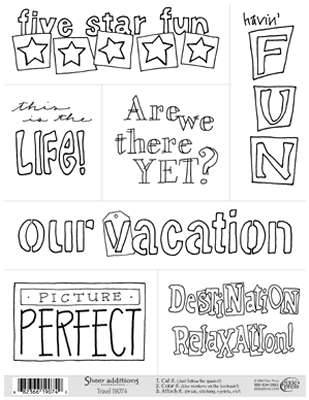 five star fun
havin'
FUN
this
is the
LIFE!
Are we
there
YET?
our vacation
PICTURE
PERFECT
DESTINATION
RELAXATION!
Sheer additions
Travel 19074
1. Cut it.
2. Color it.
3. Attach it.